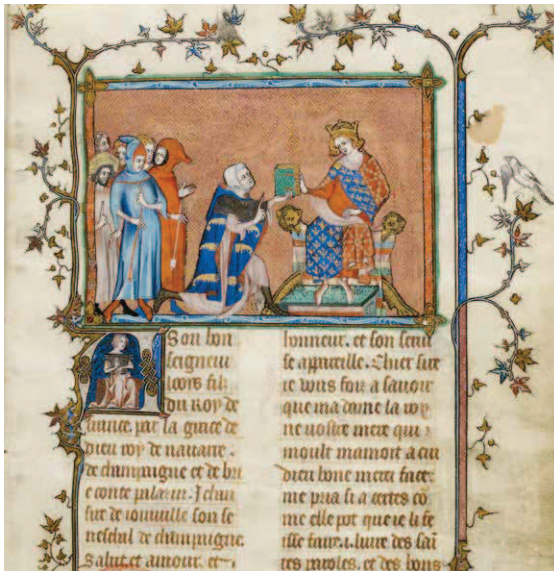 A Son bon
seigneur
looys filz
du Roy de
france. par la grace de
dieu roy de nauarre.
de champaigne et de bri
e conte palazin. Jehan
sire de ioinuille son se
neschal de champaigne.
Salut et amour. et
honneur. et son serui
se appareille. Chier sire
ie vous foiz a sauoir
que ma dame la roy
ne vostre mere qui
moult mamoit a cui
dieu bone merci face.
me pria si a certes co
me elle pot que ie li fe
isse faire .i. liure des sai
tes paroles. et des bons